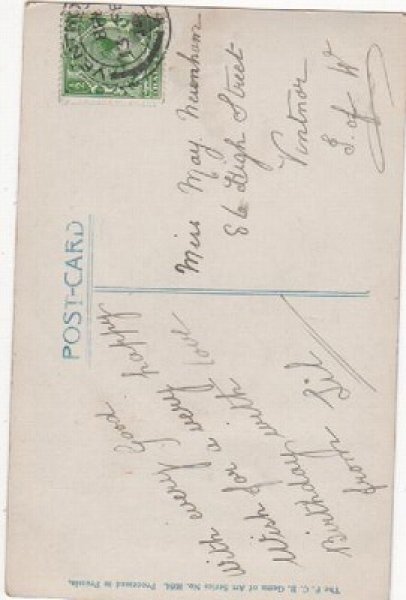 POST-CARD
With every good
Wish for a very happy
Birthday with love
from Sid
Miss May Newnham
86 Leigh Street
Ventnor
I. of W
The P. C. B. Gems of Art Series No. Processed in Prussia.